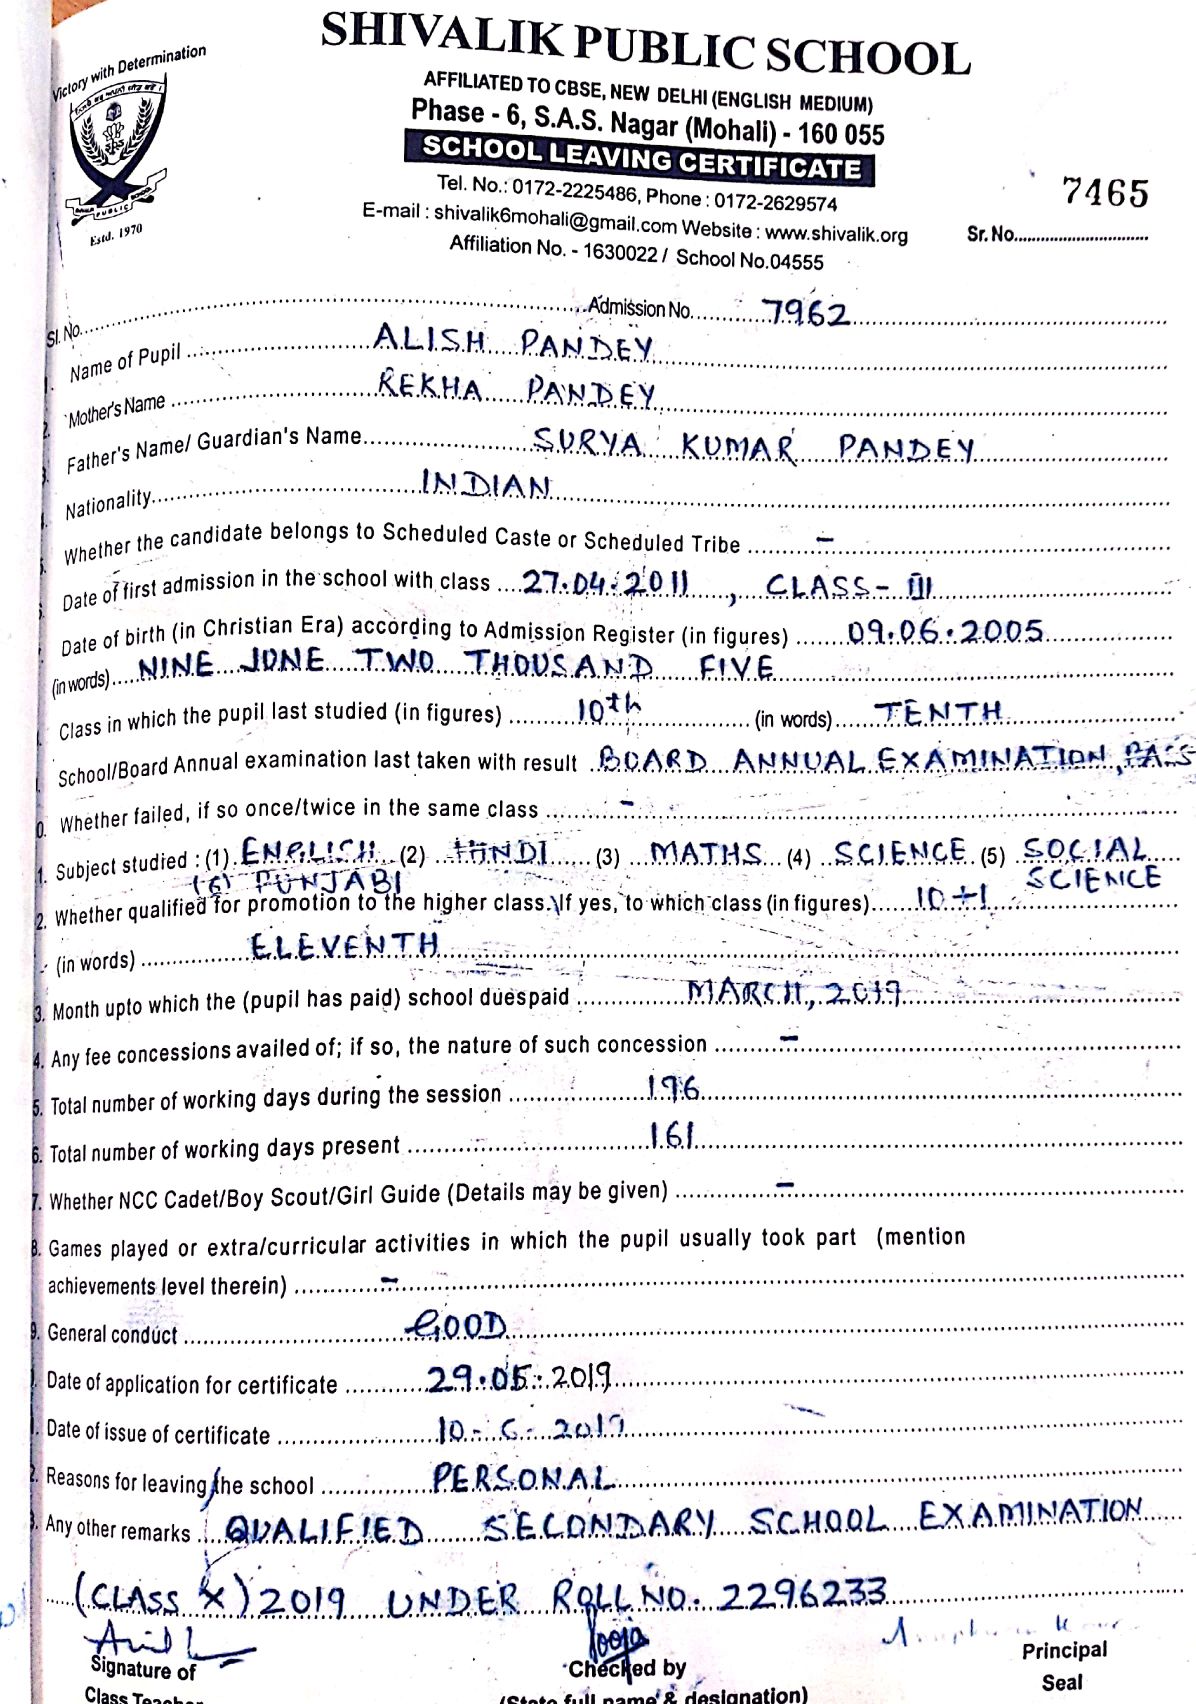 SHIVALIK PUBLIC SCHOOL
Victory with Determination
AFFILIATED TO CBSE, NEW DELHI (ENGLISH MEDIUM)
Phase - 6, S.A.S. Nagar (Mohali) - 160 055
SCHOOL LEAVING CERTIFICATE
Tel. No.: 0172-2225486, Phone : 0172-2629574
7465
E-mail : shivalik6mohali@gmail.com Website : www.shivalik.org
Sr. No.
PUBLIC SCHOOL
Estd. 1970
Affiliation No. - 1630022 / School No.04555
Sl. No. Admission No. 7962
Name of Pupil ALISH PANDEY
2. Mother's Name REKHA PANDEY
3. Father's Name/ Guardian's Name SURYA KUMAR PANDEY
Nationality INDIAN
5. Whether the candidate belongs to Scheduled Caste or Scheduled Tribe –
Date of first admission in the school with class 27.04.2011, CLASS- III
Date of birth (in Christian Era) according to Admission Register (in figures) 09.06.2005
(in words) NINE JUNE TWO THOUSAND FIVE
Class in which the pupil last studied (in figures) 10th (in words) TENTH
School/Board Annual examination last taken with result BOARD ANNUAL EXAMINATION, PASS
0. Whether failed, if so once/twice in the same class -
1. Subject studied : (1) ENGLISH (2) HINDI (3) MATHS (4) SCIENCE (5) SOCIAL SCIENCE
(6) PUNJABI
2. Whether qualified for promotion to the higher class. If yes, to which class (in figures) 10+1
(in words) ELEVENTH
3. Month upto which the (pupil has paid) school duespaid MARCH, 2019
4. Any fee concessions availed of; if so, the nature of such concession –
5. Total number of working days during the session 196
6. Total number of working days present 161
7. Whether NCC Cadet/Boy Scout/Girl Guide (Details may be given) –
8. Games played or extra/curricular activities in which the pupil usually took part (mention
achievements level therein) –
9. General conduct GOOD
Date of application for certificate 29.05.2019
Date of issue of certificate 10-6-2019
2. Reasons for leaving the school PERSONAL
3. Any other remarks QUALIFIED SECONDARY SCHOOL EXAMINATION
(CLASS X) 2019 UNDER ROLL NO. 2296233
Pooja
Signature of Checked by Principal
Class Teacher (State full name & designation) Seal